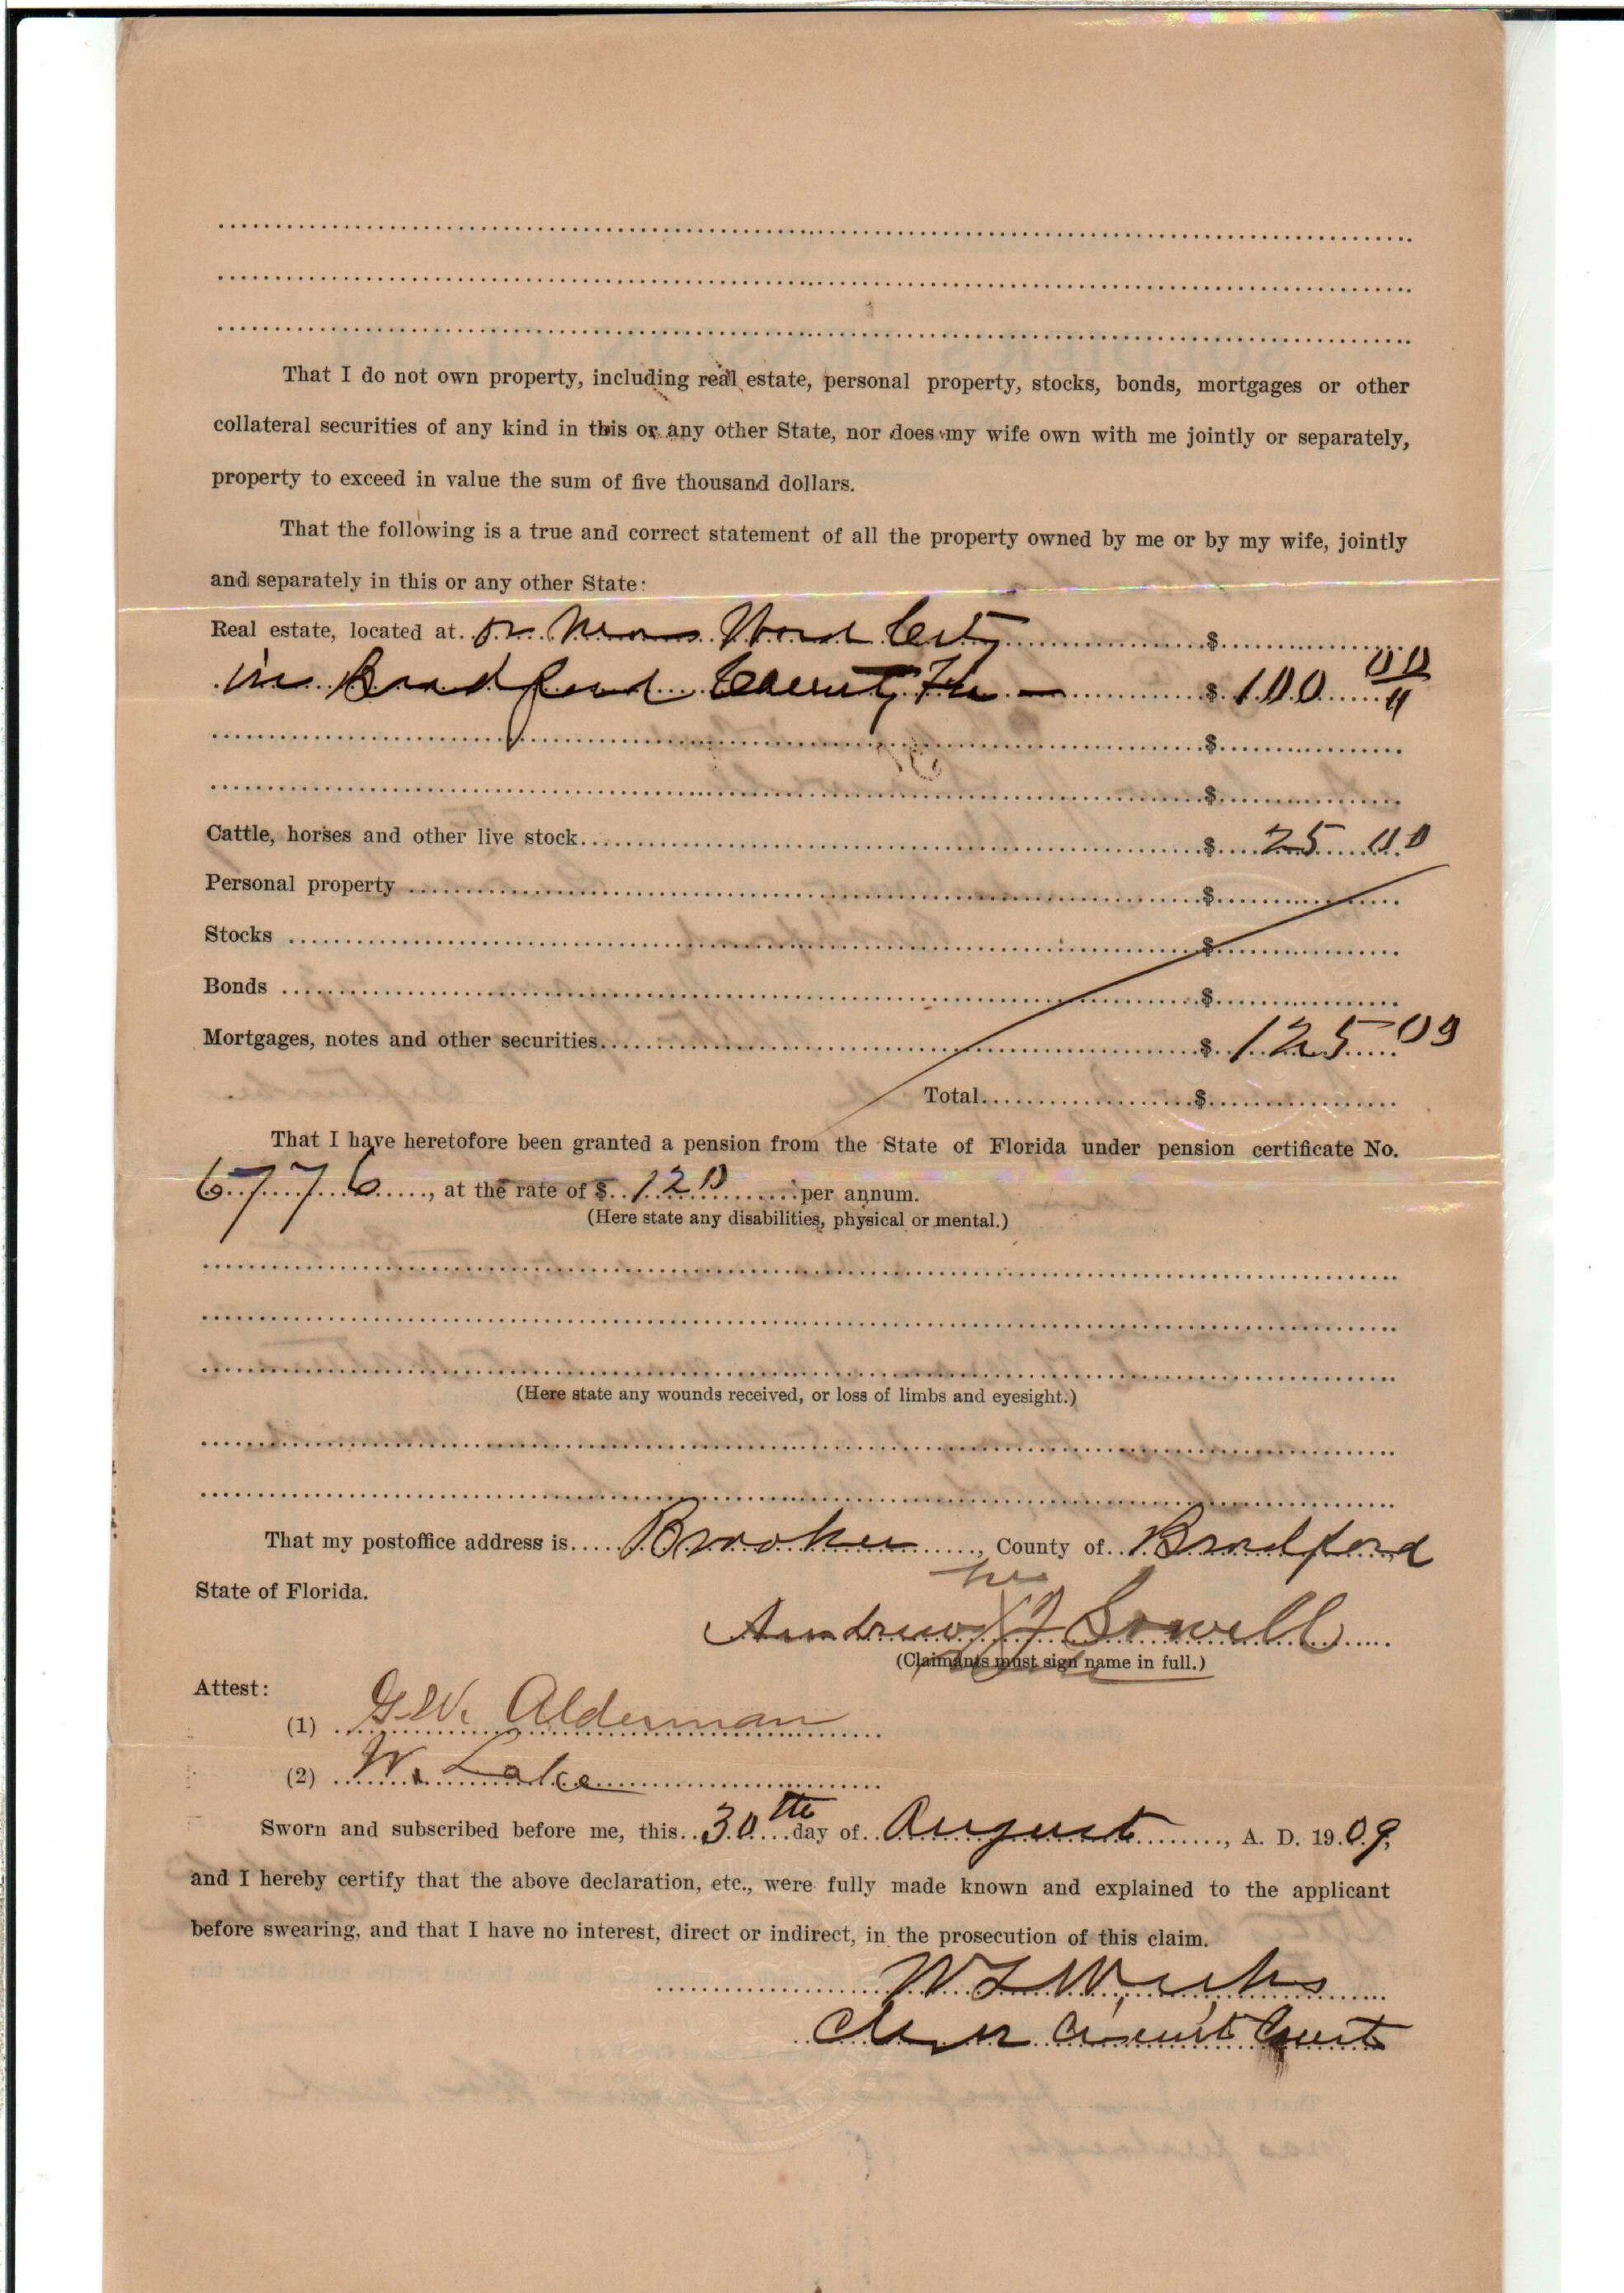 That I do not own property, including real estate, personal property, stocks, bonds, mortgages or other
collateral securities of any kind in this or any other State, nor does my wife own with me jointly or separately,
property to exceed in value the sum of five thousand dollars.
That the following is a true and correct statement of all the property owned by me or by my wife, jointly
and separately in this or any other State:
Real estate, located at or City $
in Bradford County Fla — $ 100 00
$
$
Cattle, horses and other live stock $ 25 00
Personal property $
Stocks $
Bonds $
Mortgages, notes and other securities $ 125
Total $
That I have heretofore been granted a pension from the State of Florida under pension certificate No.
6776, at the rate of $ 120 per annum.
(Here state any disabilities, physical or mental.)
(Here state any wounds received, or loss of limbs and eyesight.)
That my postoffice address is Brooker, County of Bradford
State of Florida.
his
Andrew X J Sowell
(Claimants must sign name in full.)
Attest:
(1) G.W. Alderman
(2) W. Lake
Sworn and subscribed before me, this 30th day of August, A. D. 1909,
and I hereby certify that the above declaration, etc., were fully made known and explained to the applicant
before swearing, and that I have no interest, direct or indirect, in the prosecution of this claim.
W L Weeks
Clerk Circuit Court